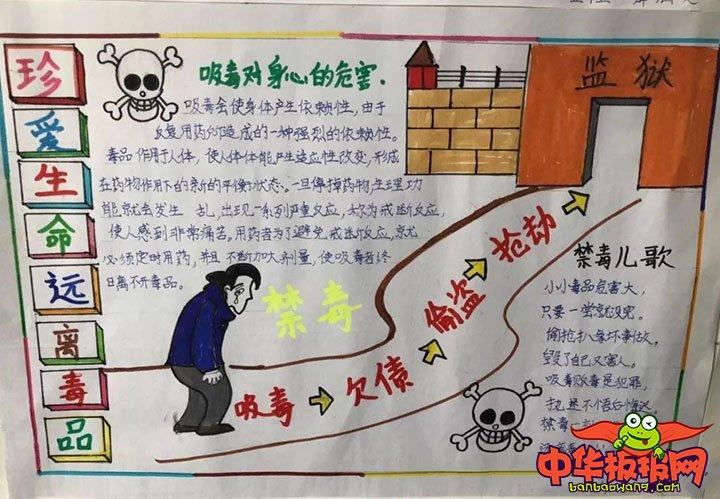 珍爱生命远离毒品
吸毒对身心的危害.
吸毒会使身体产生依赖性,由于
反复用药所造成的一种强烈的依赖性。
毒品作用于人体,使人体体能产生适应性改变,形成
在药物作用下的新的平衡状态。一旦停掉药物,生理功
能就会发生 乱,出现一系列严重反应,称为戒断反应,
使人感到非常痛苦。用药者为了避免戒断反应,就
必须定时用药,并且不断加大剂量,使吸毒者终
日离不开毒品。
禁毒
吸毒
欠债
偷盗
抢劫
监狱
禁毒儿歌
小小毒品危害大,
只要一尝就没完。
偷抢扒拿坏事做,
毁了自己又害人。
吸毒贩毒是犯罪,
执迷不悟后悔迟。
禁毒
中华板报网
banbaowang.com